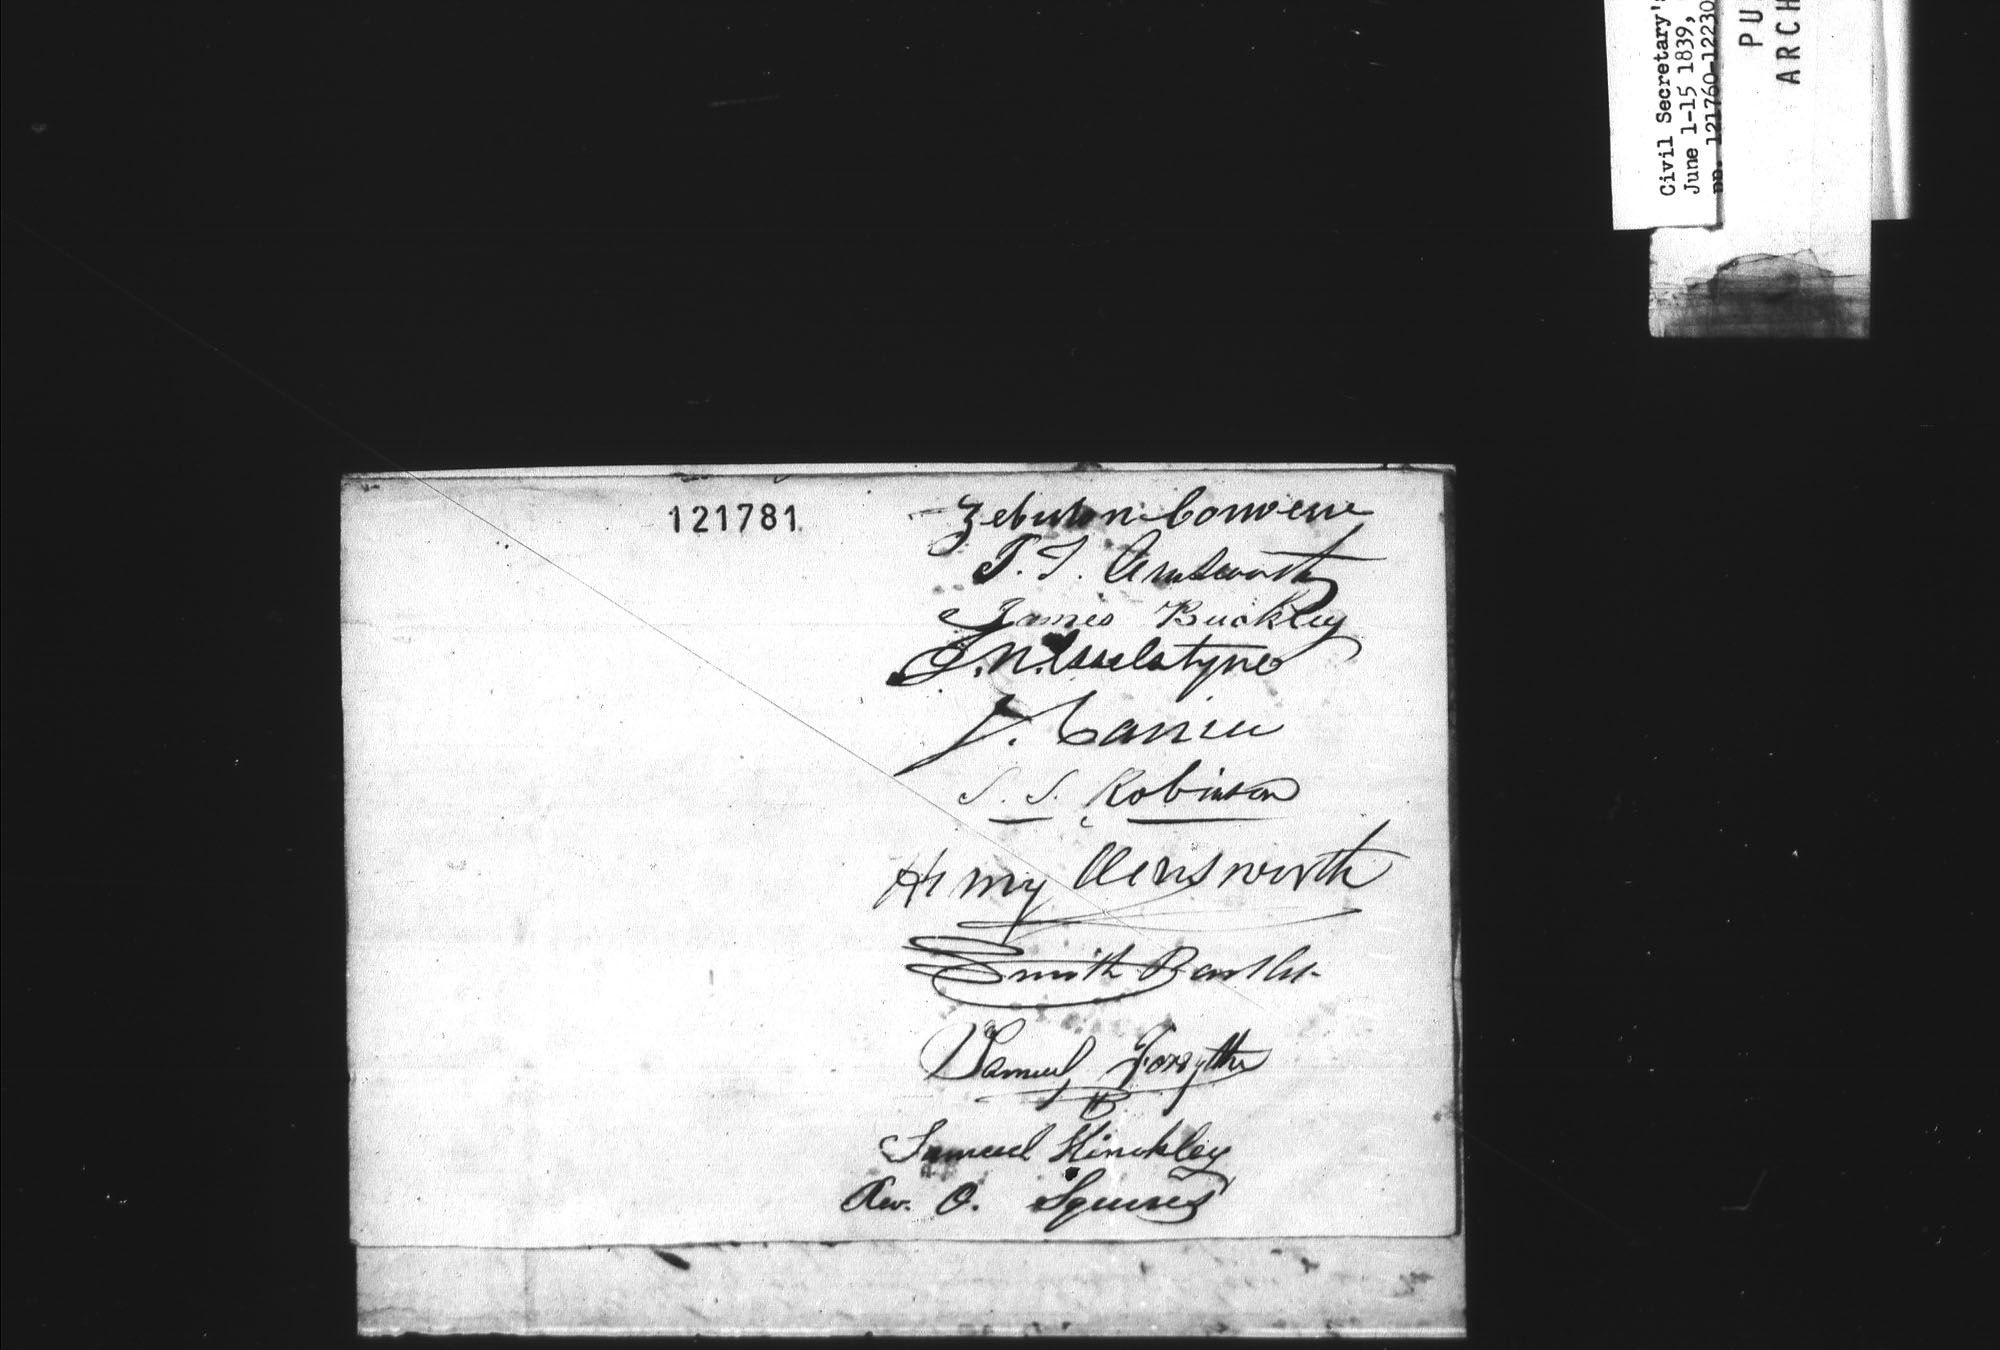 Civil Secretary's
June 1-15 1839,
pp. 121760-12230
PU
ARCH
121781
Zebulon Converse
T. T. Ainsworth
James Buckley
J. N.
J.
S. S. Robinson
Henry Aensworth
Smith
Samuel Forsythe
Samuel Hinckley
Rev. O. Squires